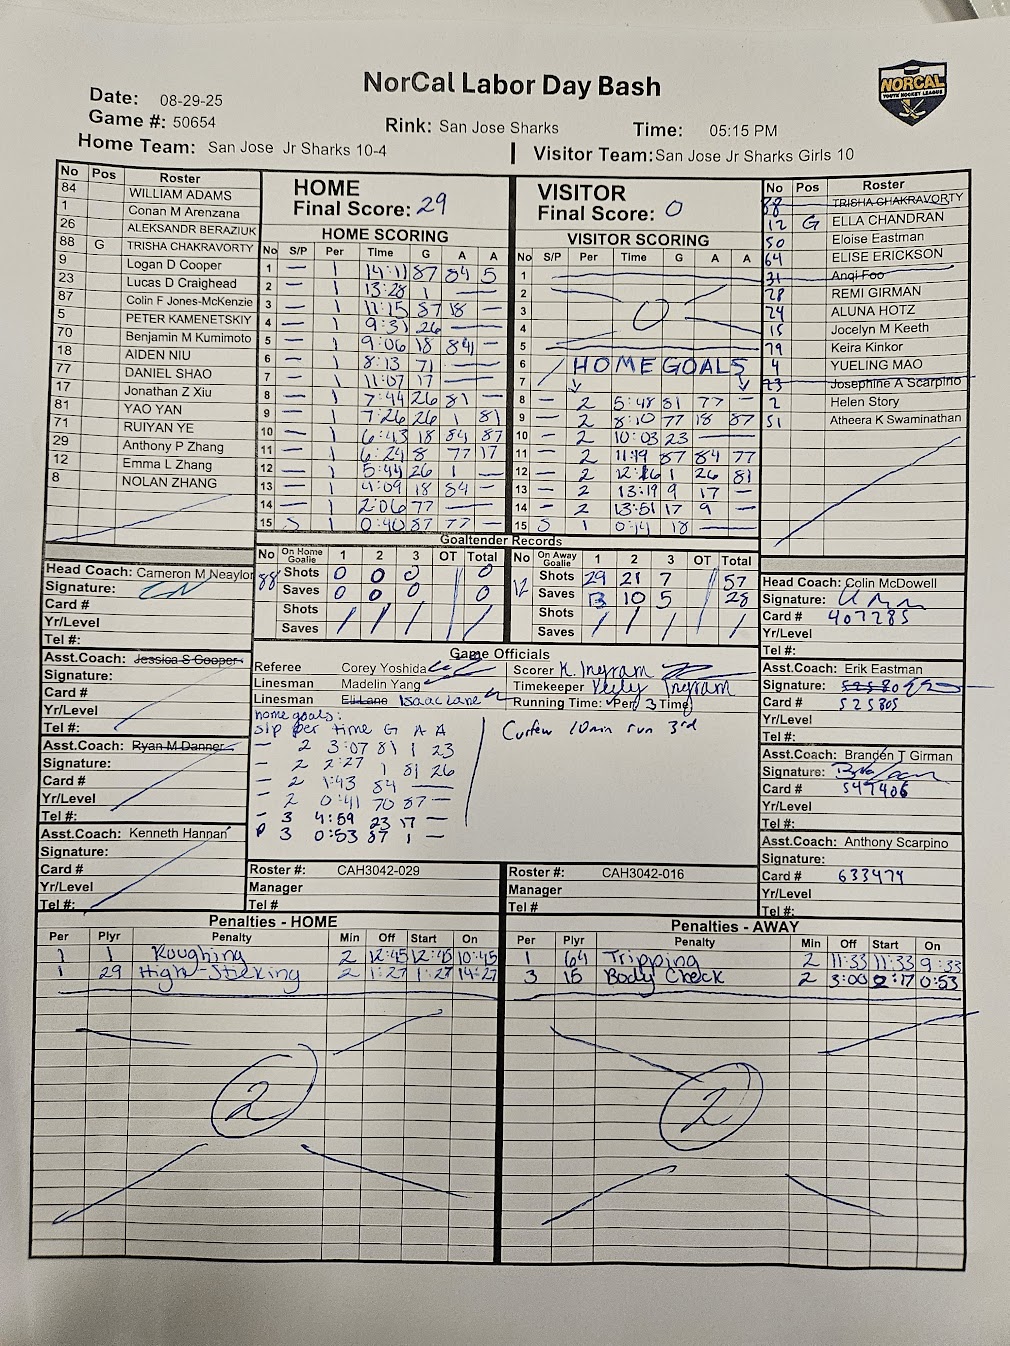 NorCal Labor Day Bash
NORCAL
YOUTH HOCKEY LEAGUE
Date: 08-29-25
Game #: 50654
Rink: San Jose Sharks
Time: 05:15 PM
Home Team: San Jose Jr Sharks 10-4
Visitor Team: San Jose Jr Sharks Girls 10
No Pos Roster
84 WILLIAM ADAMS
1 Conan M Arenzana
26 ALEKSANDR BERAZIUK
88 G TRISHA CHAKRAVORTY
9 Logan D Cooper
23 Lucas D Craighead
87 Colin F Jones-McKenzie
5 PETER KAMENETSKIY
70 Benjamin M Kumimoto
18 AIDEN NIU
77 DANIEL SHAO
17 Jonathan Z Xiu
81 YAO YAN
71 RUIYAN YE
29 Anthony P Zhang
12 Emma L Zhang
8 NOLAN ZHANG
HOME
Final Score: 29
HOME SCORING
No S/P Per Time G A A
1 — 1 14:11 87 84 5
2 — 1 13:28 1 —
3 — 1 11:15 87 18 —
4 — 1 9:31 26 —
5 — 1 9:06 18 84 —
6 — 1 8:13 71 —
7 — 1 11:07 17 —
8 — 1 7:44 26 81 —
9 — 1 7:26 26 1 81
10 — 1 6:43 18 84 87
11 — 1 6:24 8 77 17
12 — 1 5:44 26 1 —
13 — 1 4:09 18 84 —
14 — 1 2:06 77 —
15 S 1 0:40 87 77 —
VISITOR
Final Score: 0
VISITOR SCORING
No S/P Per Time G A A
1
2
3 0
4
5
6 HOME GOALS
7
8 — 2 5:48 81 77 —
9 — 2 8:10 77 18 87
10 — 2 10:03 23 —
11 — 2 11:19 87 84 77
12 — 2 12:16 1 26 81
13 — 2 13:19 9 17 —
14 — 2 13:51 17 9 —
15 S 1 0:14 18 —
No Pos Roster
88 TRISHA CHAKRAVORTY
12 G ELLA CHANDRAN
50 Eloise Eastman
64 ELISE ERICKSON
31 Angi Foo
28 REMI GIRMAN
24 ALUNA HOTZ
15 Jocelyn M Keeth
79 Keira Kinkor
4 YUELING MAO
23 Josephine A Scarpino
2 Helen Story
51 Atheera K Swaminathan
Goaltender Records
No On Home Goalie 1 2 3 OT Total
88 Shots 0 0 0 0
Saves 0 0 0 0
Shots
Saves
No On Away Goalie 1 2 3 OT Total
12 Shots 29 21 7 57
Saves 13 10 5 28
Shots
Saves
Head Coach: Cameron M Neaylon
Signature:
Card #
Yr/Level
Tel #:
Asst.Coach: Jessica S Cooper
Signature:
Card #
Yr/Level
Tel #:
Asst.Coach: Ryan M Danner
Signature:
Card #
Yr/Level
Tel #:
Asst.Coach: Kenneth Hannan
Signature:
Card #
Yr/Level
Tel #:
Game Officials
Referee Corey Yoshida
Linesman Madelin Yang
Linesman Eli Lane Isaac Lane
Scorer K. Ingram
Timekeeper Keely Ingram
Running Time: (Per/ 3 Time)
home goals:
S/P per time G A A
— 2 3:07 81 1 23
— 2 2:27 1 81 26
— 2 1:43 84 —
— 2 0:41 70 87 —
— 3 4:59 23 17 —
P 3 0:53 87 1 —
Curfew 10min run 3rd
Head Coach: Colin McDowell
Signature:
Card # 407285
Yr/Level
Tel #:
Asst.Coach: Erik Eastman
Signature:
Card # 525805
Yr/Level
Tel #:
Asst.Coach: Branden T Girman
Signature:
Card # 547406
Yr/Level
Tel #:
Asst.Coach: Anthony Scarpino
Signature:
Card # 633474
Yr/Level
Tel #:
Roster #: CAH3042-029
Manager
Tel #
Roster #: CAH3042-016
Manager
Tel #
Penalties - HOME
Per Plyr Penalty Min Off Start On
1 1 Roughing 2 12:45 12:45 10:45
1 29 High-Sticking 2 1:27 1:27 14:27
2
Penalties - AWAY
Per Plyr Penalty Min Off Start On
1 64 Tripping 2 11:33 11:33 9:33
3 15 Body Check 2 3:00 2:17 0:53
2